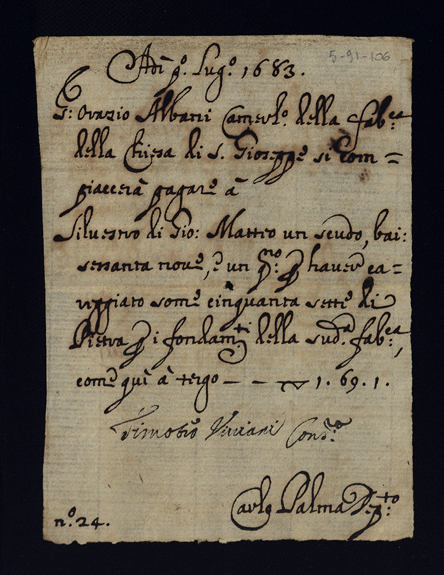 5-91-106
Adì p.º Lug.º 1683.
S.r Orazio Albani Camerl.º della fab.ca
della Chiesa di S. Gioseppe si Com=
piacerà pagare à
Silvestro di Gio: Matteo un scudo, bai:
sessanta nove, è un q.no p haver ca=
riggiato some cinquanta sette di
Pietra p i fondam.ti della sud.a fab.ca,
come quì à tergo — — 1. 69. 1.
Timoteo Viviani Cons.re
Carlo Palma Dep.to
n.º 24.